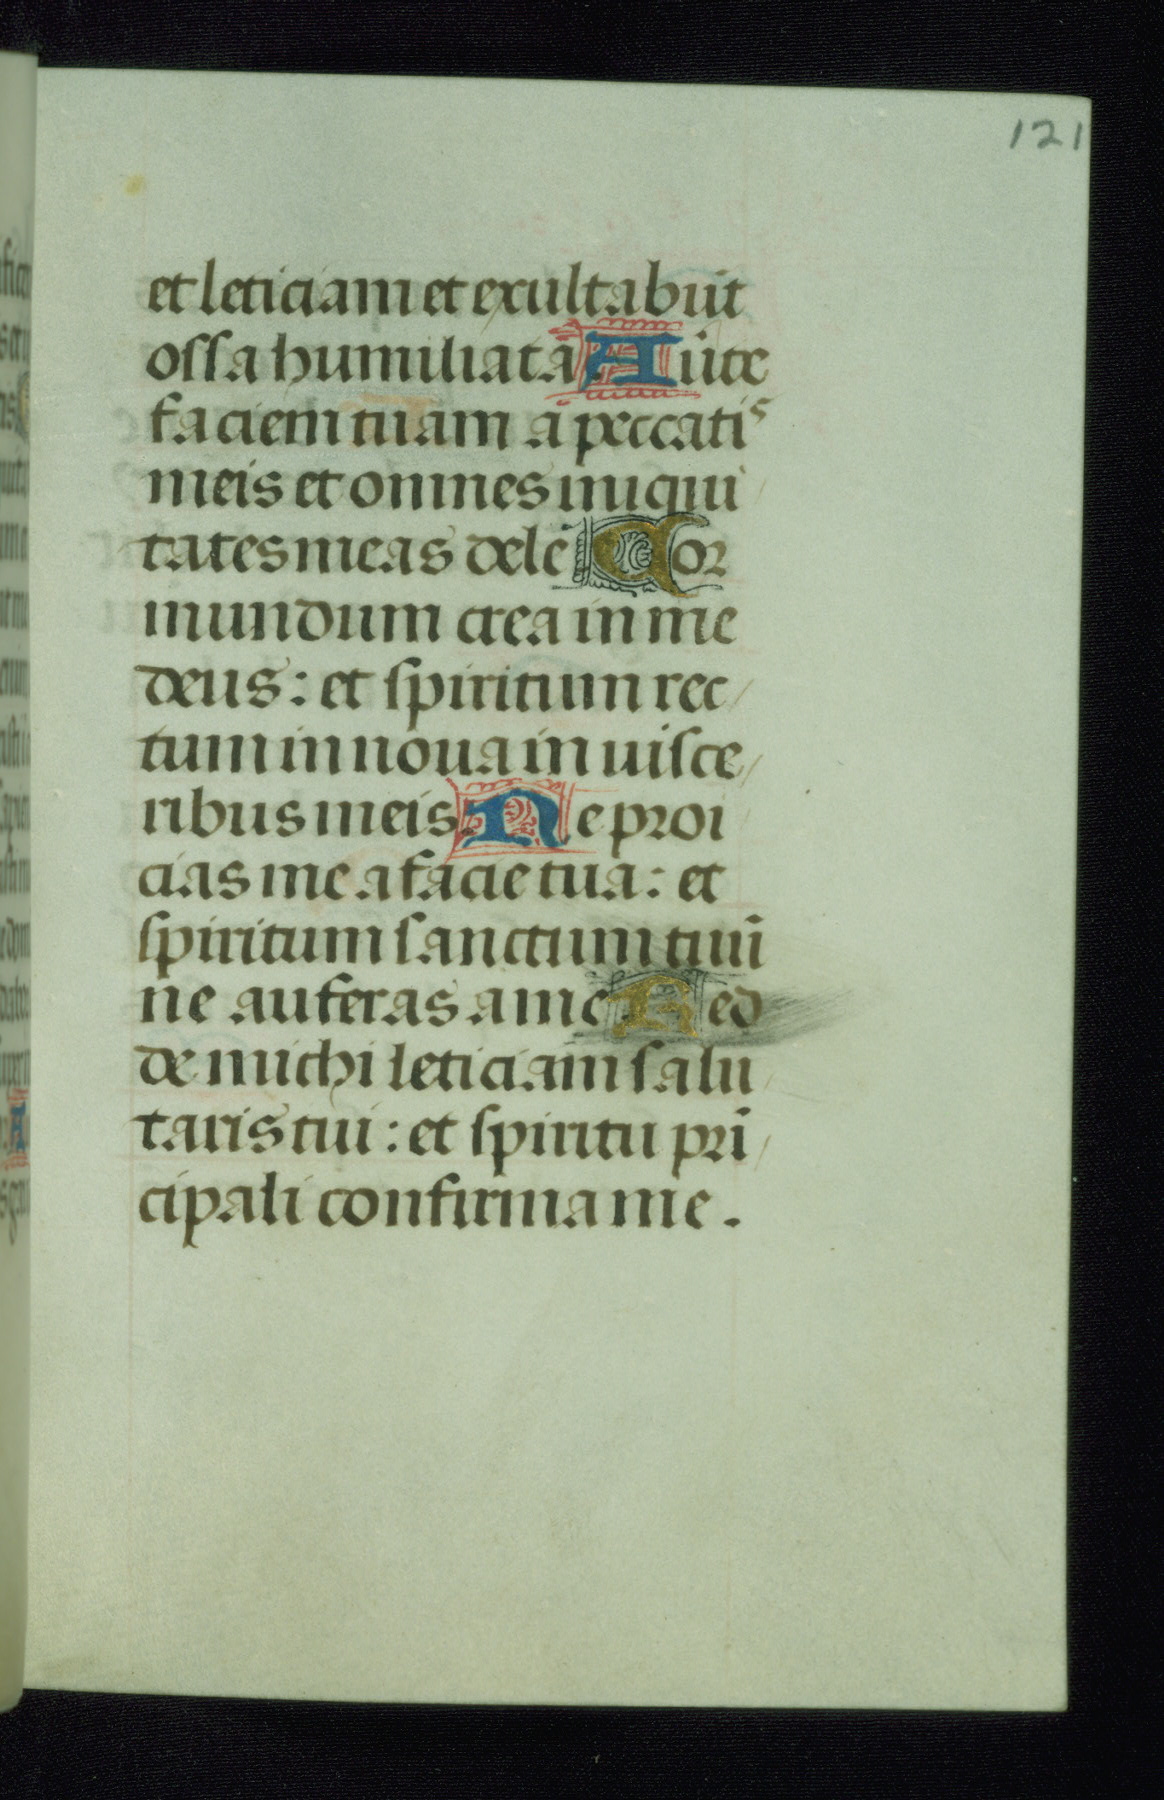 121
et leticiam et exultabūt
ossa humiliata Auīte
faciem tuam a peccatis
meis et omnes iniqui
tates meas dele Cor
mundum crea in me
deus: et spiritum rec
tum innoua in uisce
ribus meis. Ne proi
cias me a facie tua: et
spiritum sanctum tuū
ne auferas a me Red
de michi leticiam salu
taris tui: et spiritu prī
cipali confirma me.